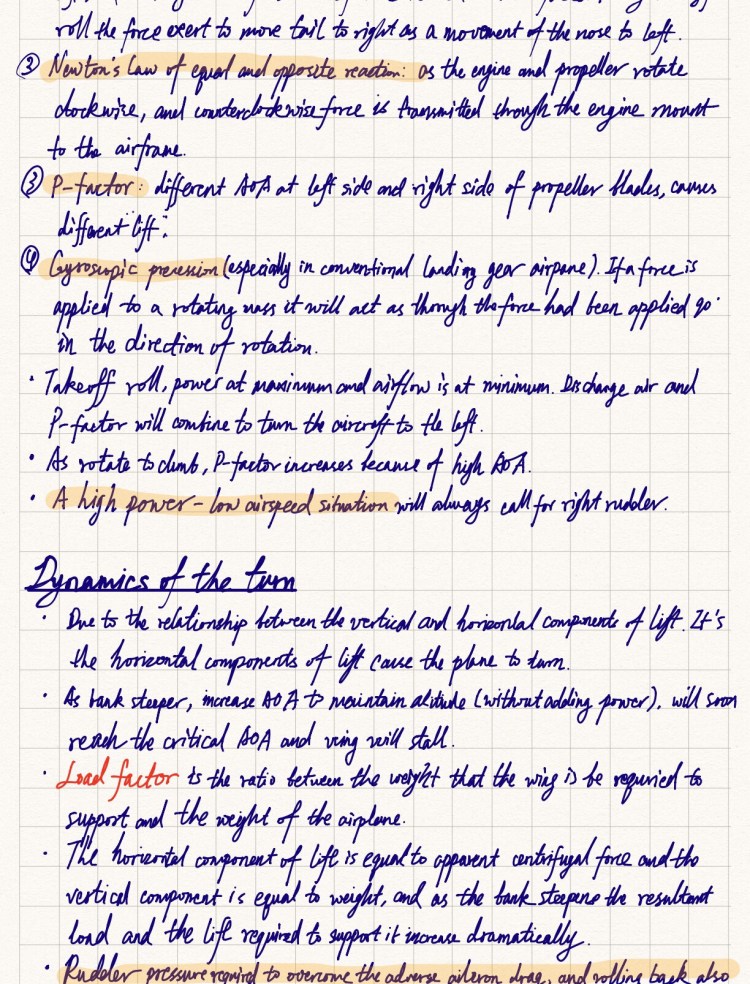 roll the force exert to move tail to right as a movement of the nose to left.
② Newton's Law of equal and opposite reaction: as the engine and propeller rotate
clockwise, and counterclockwise force is transmitted through the engine mount
to the airframe.
③ P-factor: different AOA at left side and right side of propeller blades, causes
different lift.
④ Gyroscopic precession (especially in conventional landing gear airpane). If a force is
applied to a rotating mass it will act as though the force had been applied 90°
in the direction of rotation.
· Takeoff roll, power at maximum and airflow is at minimum. Discharge air and
P-factor will combine to turn the aircraft to the left.
· As rotate to climb, P-factor increases because of high AOA.
· A high power - low airspeed situation will always call for right rudder.
Dynamics of the turn
· Due to the relationship between the vertical and horizontal components of lift. It's
the horizontal components of lift cause the plane to turn.
· As bank steeper, increase AOA to maintain altitude (without adding power), will soon
reach the critical AOA and wing will stall.
· Load factor is the ratio between the weight that the wing is be requried to
support and the weight of the airplane.
· The horizontal component of lift is equal to apparent centrifugal force and the
vertical component is equal to weight, and as the bank steepens the resultant
load and the lift required to support it increase dramatically.
· Rudder pressure required to overcome the adverse aileron drag, and rolling back also